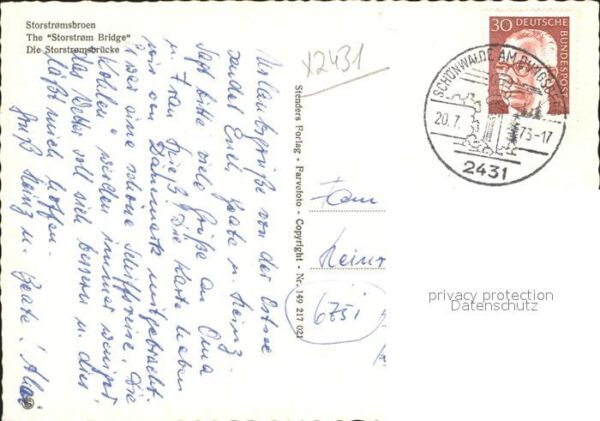 Storstrømsbroen
The "Storstrøm Bridge"
Die Storstrømsbrücke
x2431
30 DEUTSCHE
BUNDESPOST
SCHÖNWALDE AM BUNGSBERG
20.7. 73-17
2431
Urlaubsgrüße von der Ostsee
sendet Euch, Beate u. Heinz.
Sagt bitte viele Grüße an Oma
u. Frau Die Karte haben
wir aus Dänemark mitgebracht.
Es war eine schöne Schiffsreise. Die
"Kohlen" werden immer weniger
das Wetter soll sich bessern u. dies
läßt mich hoffen.
Gruß Heinz u. Beate
Stenders Forlag - Farvefoto - Copyright - Nr. 149 217 021
Fam
Heinz
6751
privacy protection
Datenschutz